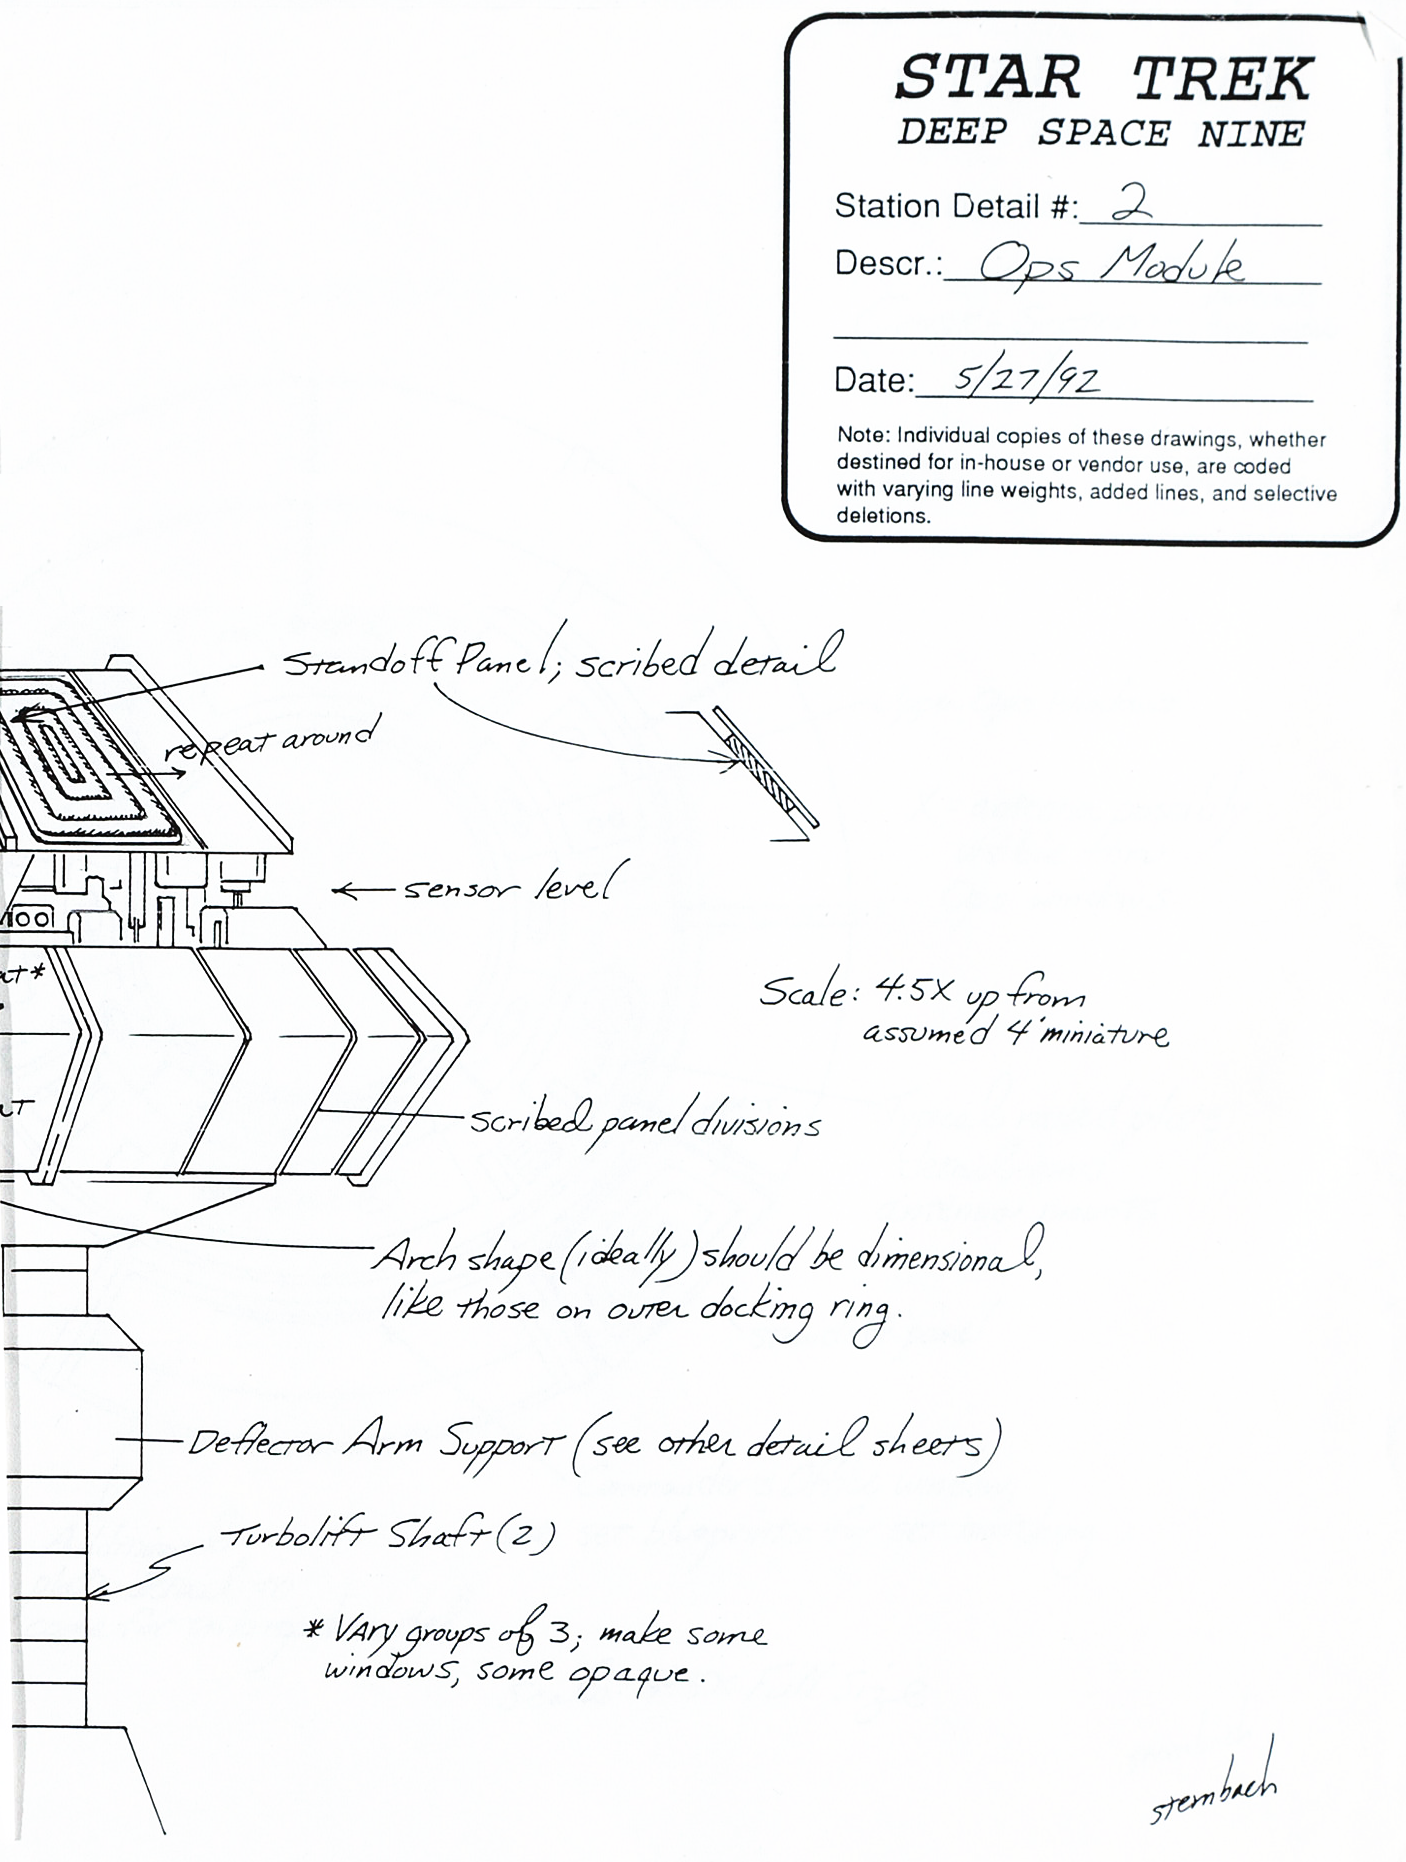 STAR TREK
DEEP SPACE NINE
Station Detail #: 2
Descr.: Ops Module
Date: 5/27/92
Note: Individual copies of these drawings, whether
destined for in-house or vendor use, are coded
with varying line weights, added lines, and selective
deletions.
Standoff Panel; scribed detail
repeat around
sensor level
Scale: 4.5X up from
assumed 4' miniature
scribed panel divisions
Arch shape (ideally) should be dimensional,
like those on outer docking ring.
Deflector Arm Support (see other detail sheets)
Turbolift Shaft (2)
* Vary groups of 3; make some
windows, some opaque.
sternbach